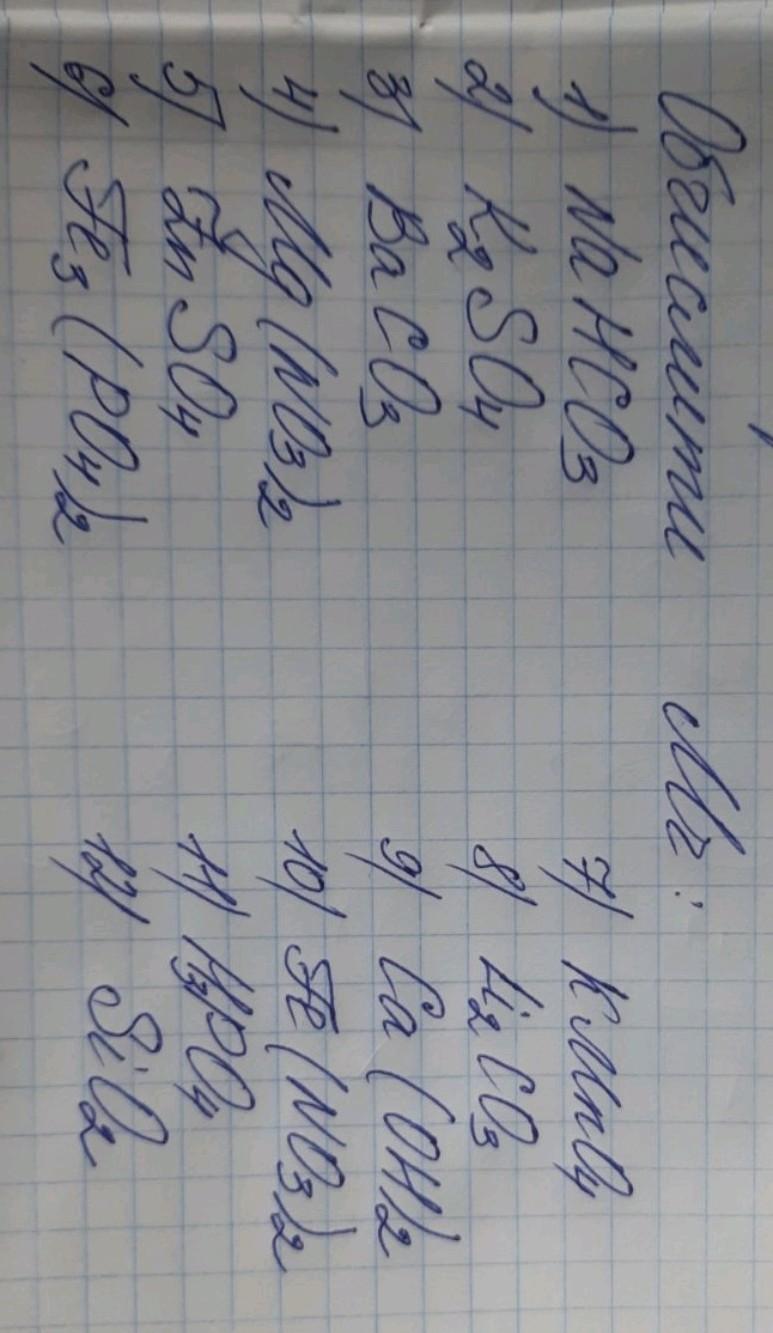 Обчислити Mr:
1) NaHCO3
2) K2SO4
3) BaCO3
4) Mg(NO3)2
5) ZnSO4
6) Fe3(PO4)2
7) KMnO4
8) Li2CO3
9) Ca(OH)2
10) Fe(NO3)2
11) H3PO4
12) SiO2